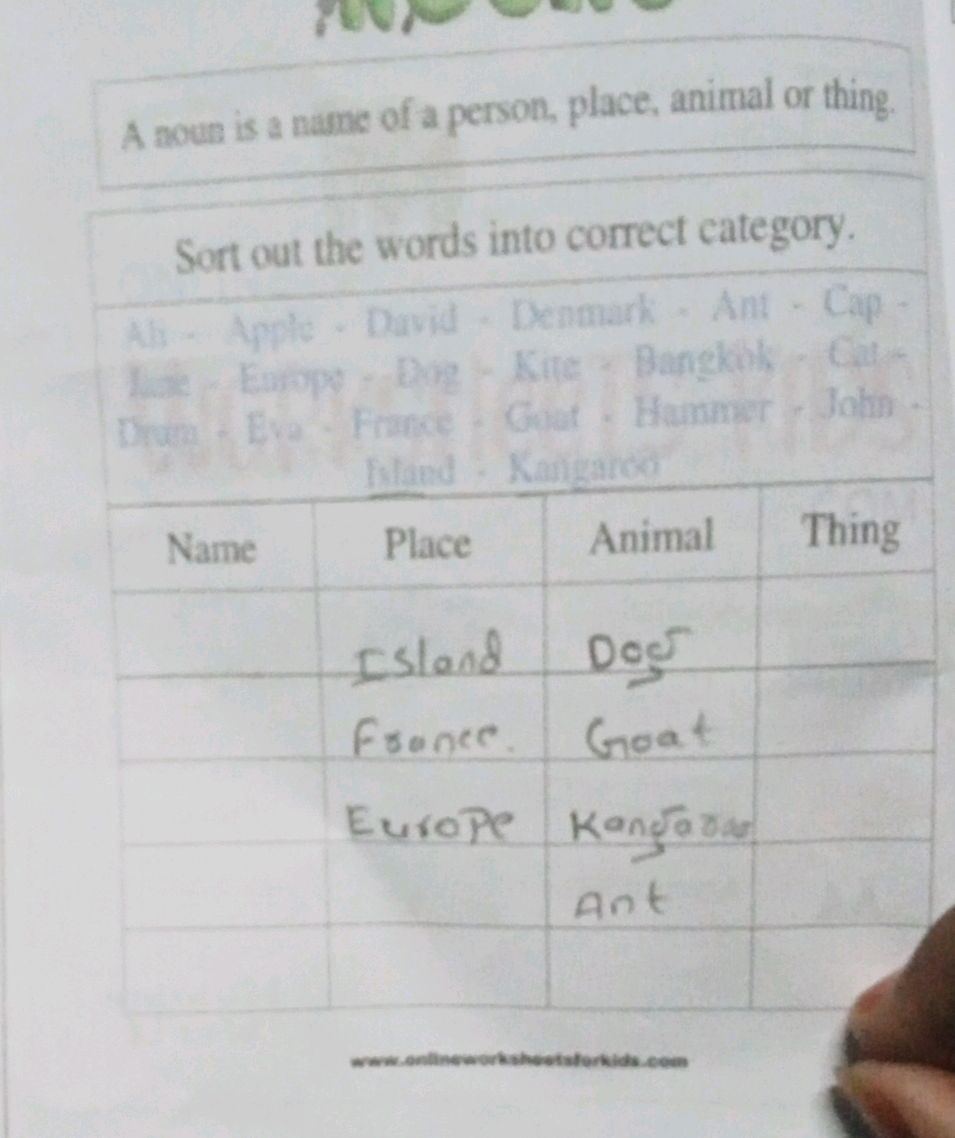 A noun is a name of a person, place, animal or thing.
Sort out the words into correct category.
Ali - Apple - David - Denmark - Ant - Cap -
Jane - Europe - Dog - Kite - Bangkok - Cat -
Drum - Eva - France - Goat - Hammer - John -
Island - Kangaroo
Name Place Animal Thing
Island Dog
France. Goat
Europe Kangaroo
Ant
www.onlineworksheetsforkids.com